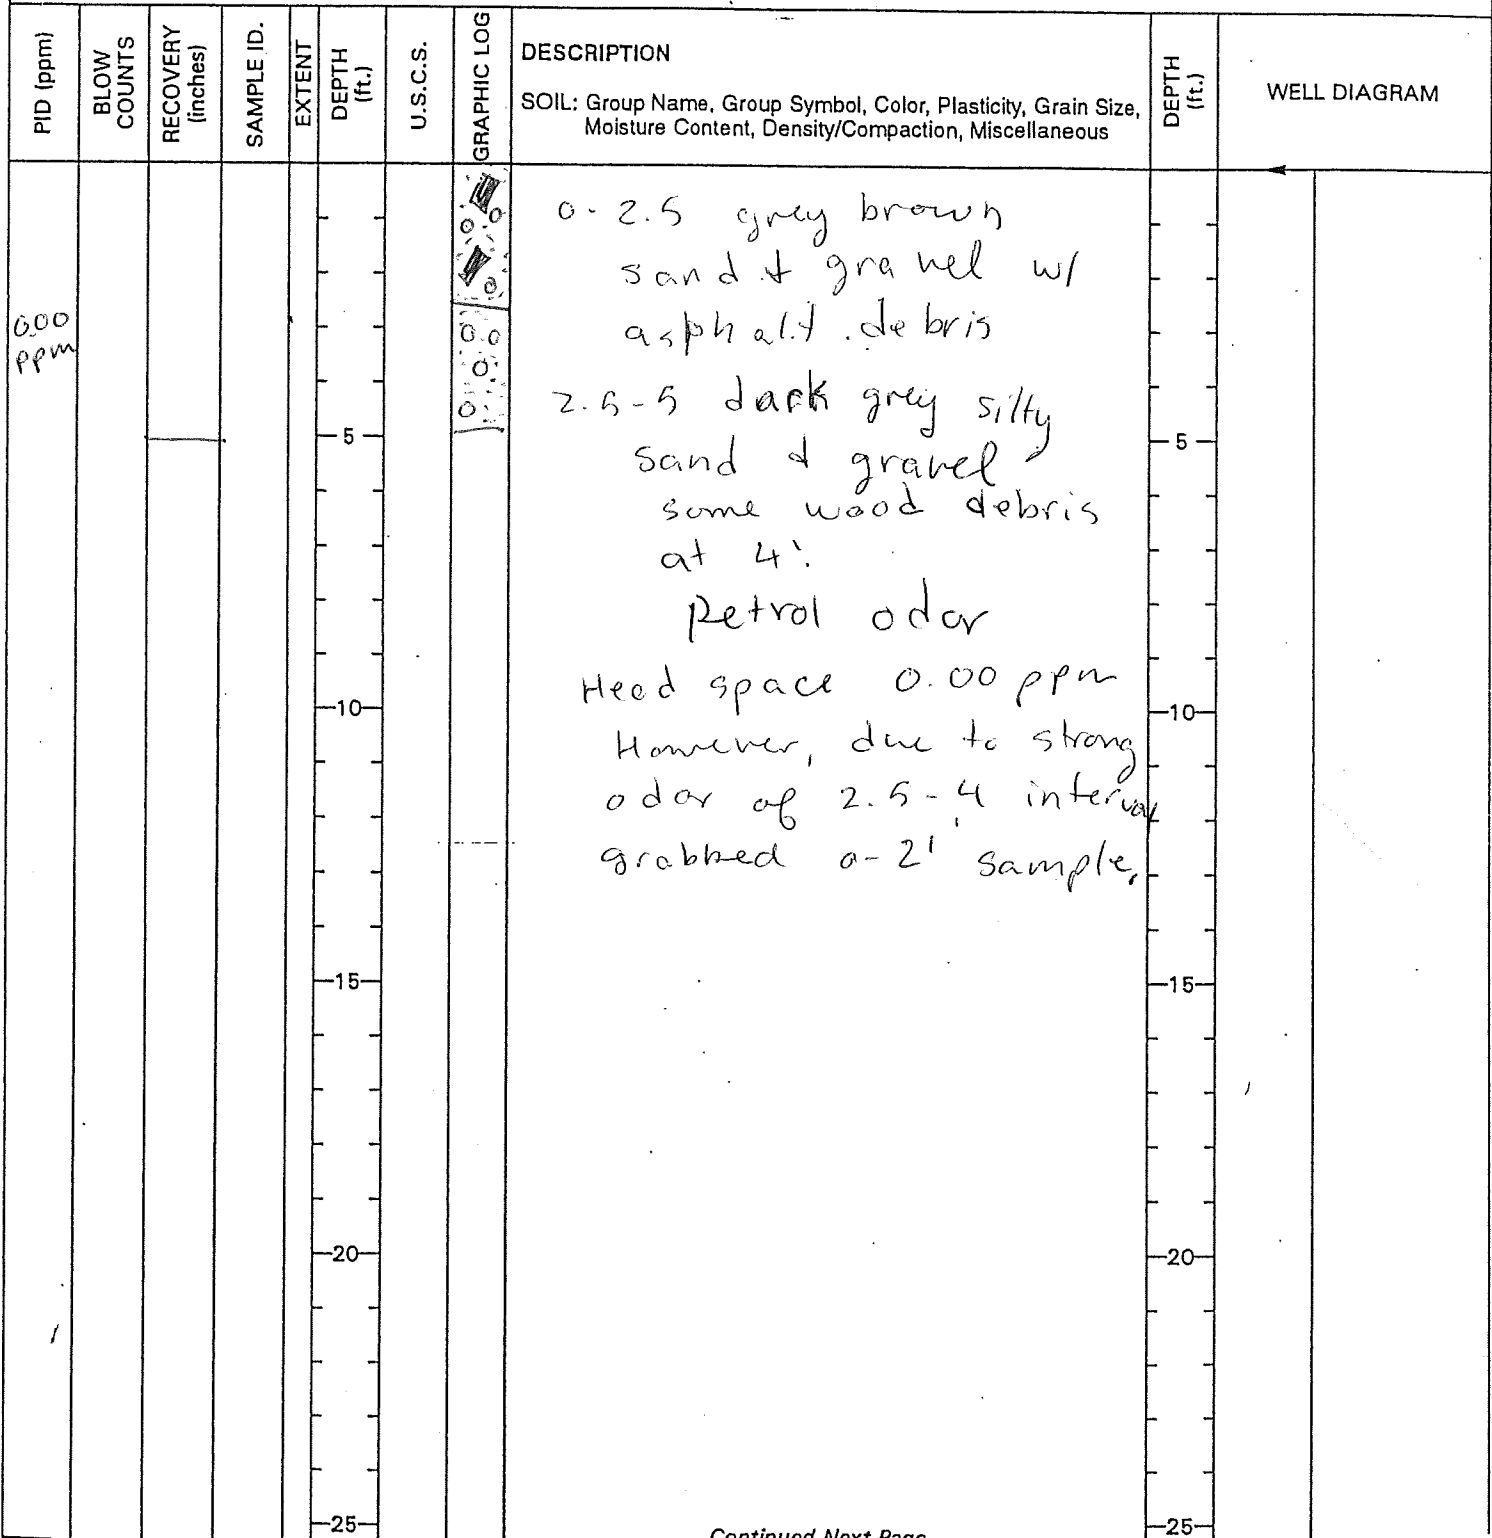 PID (ppm)
BLOW
COUNTS
RECOVERY
(inches)
SAMPLE ID.
EXTENT
DEPTH
(ft.)
U.S.C.S.
GRAPHIC LOG
DESCRIPTION
SOIL: Group Name, Group Symbol, Color, Plasticity, Grain Size,
Moisture Content, Density/Compaction, Miscellaneous
DEPTH
(ft.)
WELL DIAGRAM
0-2.5 grey brown
sand & gravel w/
asphalt debris
0.00
ppm
2.5-5 dark grey silty
sand & gravel
some wood debris
at 4'.
Petrol odor
Head space 0.00 ppm
However, due to strong
odor of 2.5-4 interval
grabbed 0-2' sample.
5 5
10 10
15 15
20 20
25 25
Continued Next Page